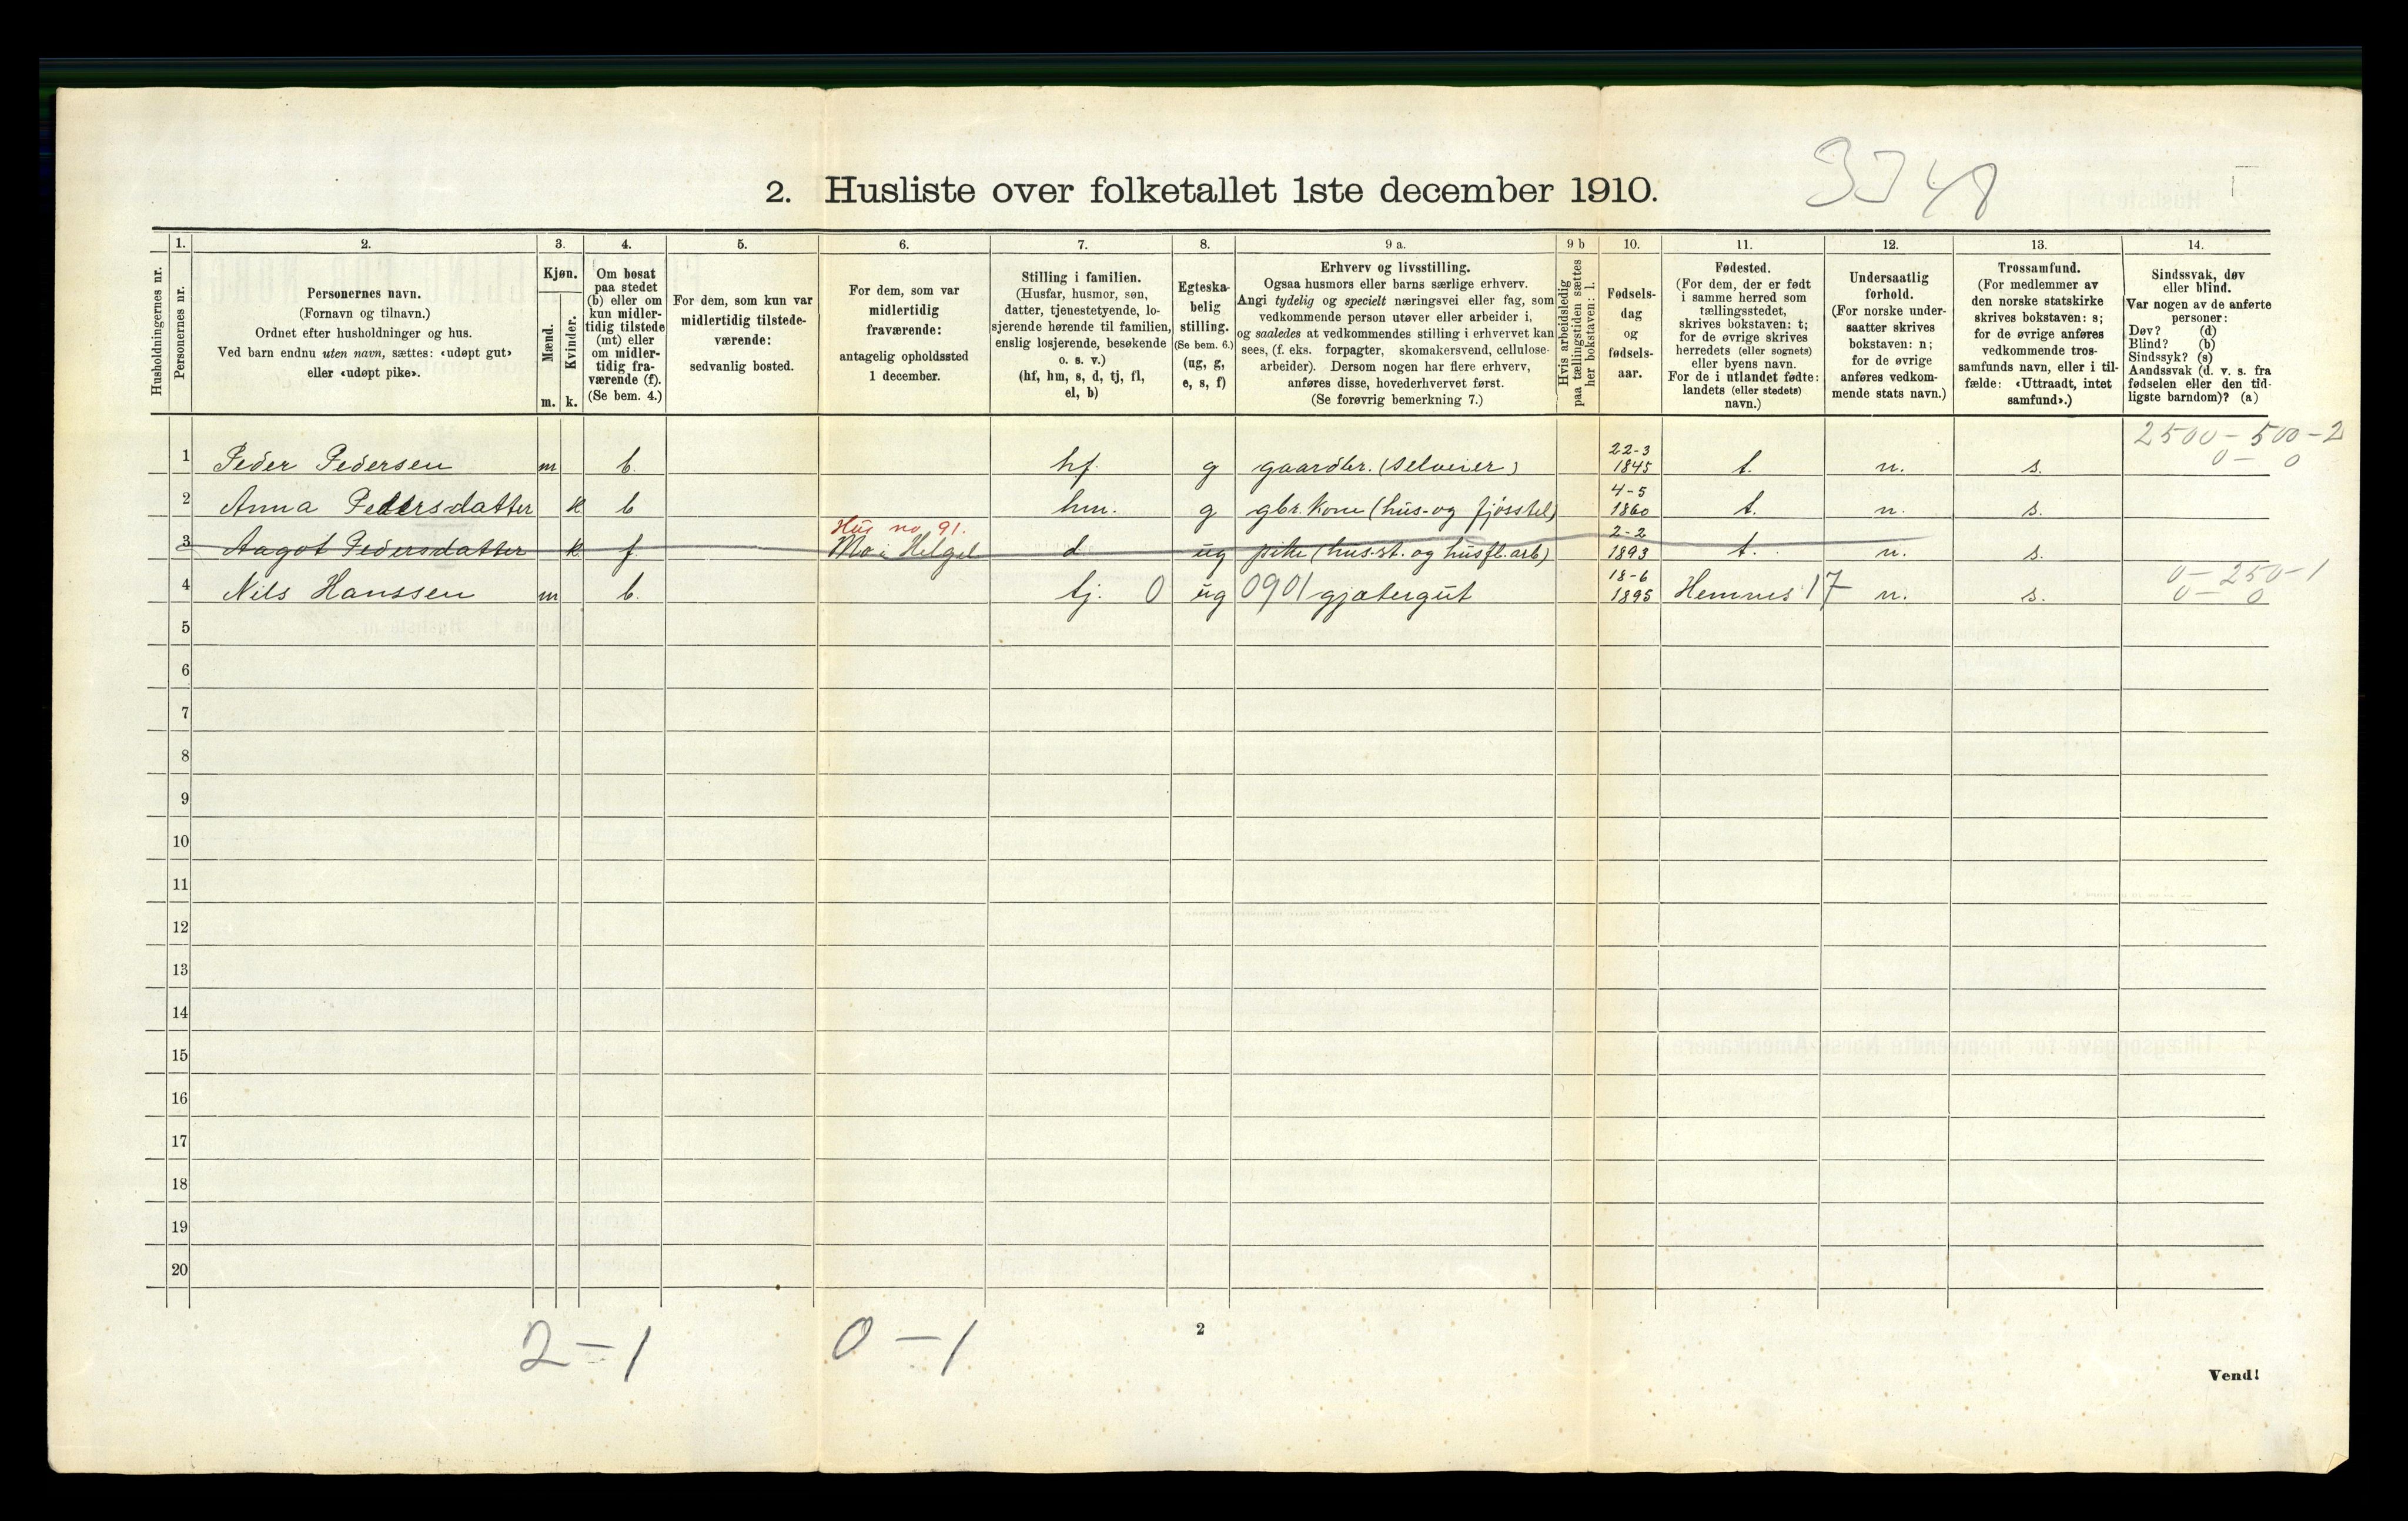 3348
2. Husliste over folketallet 1ste december 1910.
Husholdningernes nr.
1.
Personernes nr.
2.
Personernes navn.
(Fornavn og tilnavn.)
Ordnet efter husholdninger og hus.
Ved barn endnu uten navn, sættes: «udøpt gut»
eller «udøpt pike».
3.
Kjøn.
Mænd.
Kvinder.
m. k.
4.
Om bosat
paa stedet
(b) eller om
kun midler-
tidig tilstede
(mt) eller
om midler-
tidig fra-
værende (f).
(Se bem. 4.)
5.
For dem, som kun var
midlertidig tilstede-
værende:
sedvanlig bosted.
6.
For dem, som var
midlertidig
fraværende:
antagelig opholdssted
1 december.
7.
Stilling i familien.
(Husfar, husmor, søn,
datter, tjenestetyende, lo-
sjerende hørende til familien,
enslig losjerende, besøkende
o. s. v.)
(hf, hm, s, d, tj, fl,
el, b)
8.
Egteska-
belig
stilling.
(Se bem. 6.)
(ug, g,
e, s, f)
9 a.
Erhverv og livsstilling.
Ogsaa husmors eller barns særlige erhverv.
Angi tydelig og specielt næringsvei eller fag, som
vedkommende person utøver eller arbeider i,
og saaledes at vedkommendes stilling i erhvervet kan
sees, (f. eks. forpagter, skomakersvend, cellulose-
arbeider). Dersom nogen har flere erhverv,
anføres disse, hovederhvervet først.
(Se forøvrig bemerkning 7.)
9 b
Hvis arbeidsledig
paa tællingstiden sættes
her bokstaven: l.
10.
Fødsels-
dag
og
fødsels-
aar.
11.
Fødested.
(For dem, der er født
i samme herred som
tællingsstedet,
skrives bokstaven: t;
for de øvrige skrives
herredets (eller sognets)
eller byens navn.
For de i utlandet fødte:
landets (eller stedets)
navn.)
12.
Undersaatlig
forhold.
(For norske under-
saatter skrives
bokstaven: n;
for de øvrige
anføres vedkom-
mende stats navn.)
13.
Trossamfund.
(For medlemmer av
den norske statskirke
skrives bokstaven: s;
for de øvrige anføres
vedkommende tros-
samfunds navn, eller i til-
fælde: «Uttraadt, intet
samfund».)
14.
Sindssvak, døv
eller blind.
Var nogen av de anførte
personer:
Døv? (d)
Blind? (b)
Sindssyk? (s)
Aandssvak (d. v. s. fra
fødselen eller den tid-
ligste barndom)? (a)
2500 - 500 - 2
0 - 0
1 Peder Pedersen m b. hf. g gaardbr. (selveier) 22-3 1845 t. n. s.
2 Anna Pedersdatter k b hm. g gbr. kone (hus- og fjøsstel) 4-5 1860 t. n. s.
Hus no. 91.
3 Aagot Pedersdatter k f. Mo i Helgel d ug pike (hus.st. og husfl.arb) 2-2 1893 t. n. s.
0 - 250 - 1
4 Nils Hanssen m b. tj. 0 ug 0901 gjætergut 18-6 1895 Hemnes 17 n. s. 0 - 0
5
6
7
8
9
10
11
12
13
14
15
16
17
18
19
20
2 - 1
0 - 1
2
Vend!